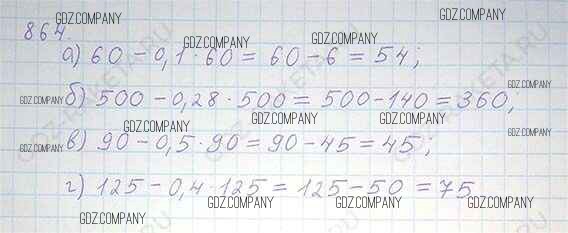 864.
а) 60 - 0,1 · 60 = 60 - 6 = 54;
б) 500 - 0,28 · 500 = 500 - 140 = 360,
в) 90 - 0,5 · 90 = 90 - 45 = 45;
г) 125 - 0,4 · 125 = 125 - 50 = 75
GDZ.COMPANY
GDZ.COMPANY
GDZ.COMPANY
GDZ.COMPANY
GDZ.COMPANY
GDZ.COMPANY
GDZ.COMPANY
GDZ.COMPANY
GDZ.COMPANY
GDZ.COMPANY
GDZ.COMPANY
GDZ.COMPANY
GDZ.COMPANY
GDZ.COMPANY